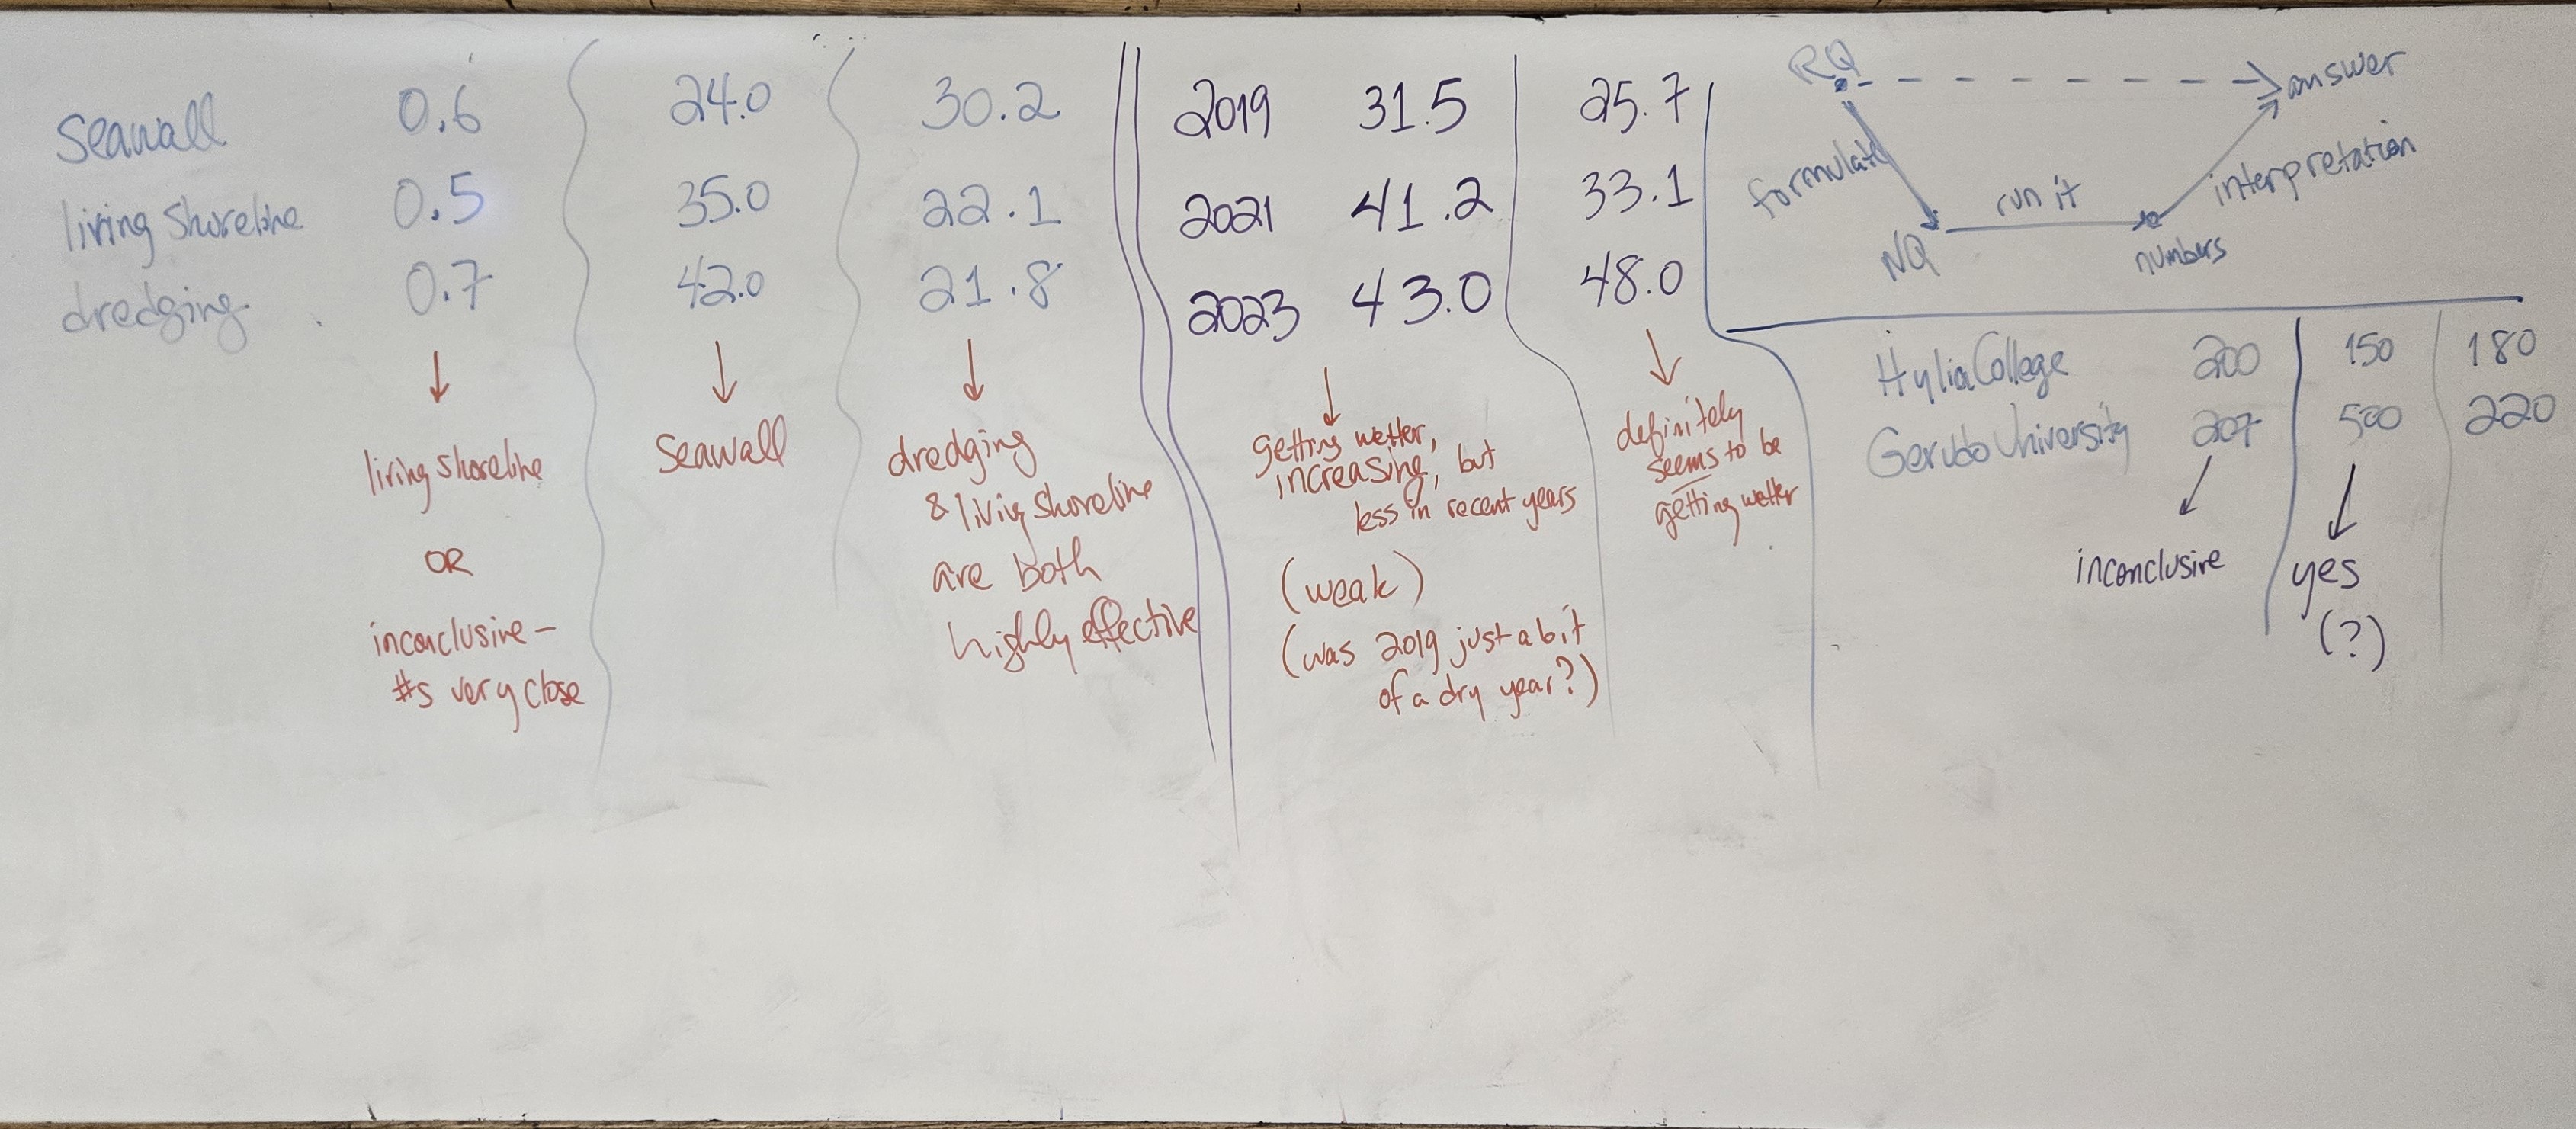 Seawall 0.6 24.0 30.2
living shoreline 0.5 35.0 22.1
dredging 0.7 42.0 21.8
living shoreline
OR
inconclusive –
#s very close
Seawall
dredging
& livig shoreline
are both
highly effective
2019 31.5 25.7
2021 41.2 33.1
2023 43.0 48.0
getting wetter,
increasing, but
less in recent years
(weak)
(was 2019 just a bit
of a dry year?)
definitely
seems to be
getting wetter
RQ
answer
formulate
run it
interpretation
NQ
numbers
Hylia College 200 150 180
Gerudo University 207 500 220
inconclusive
yes
(?)